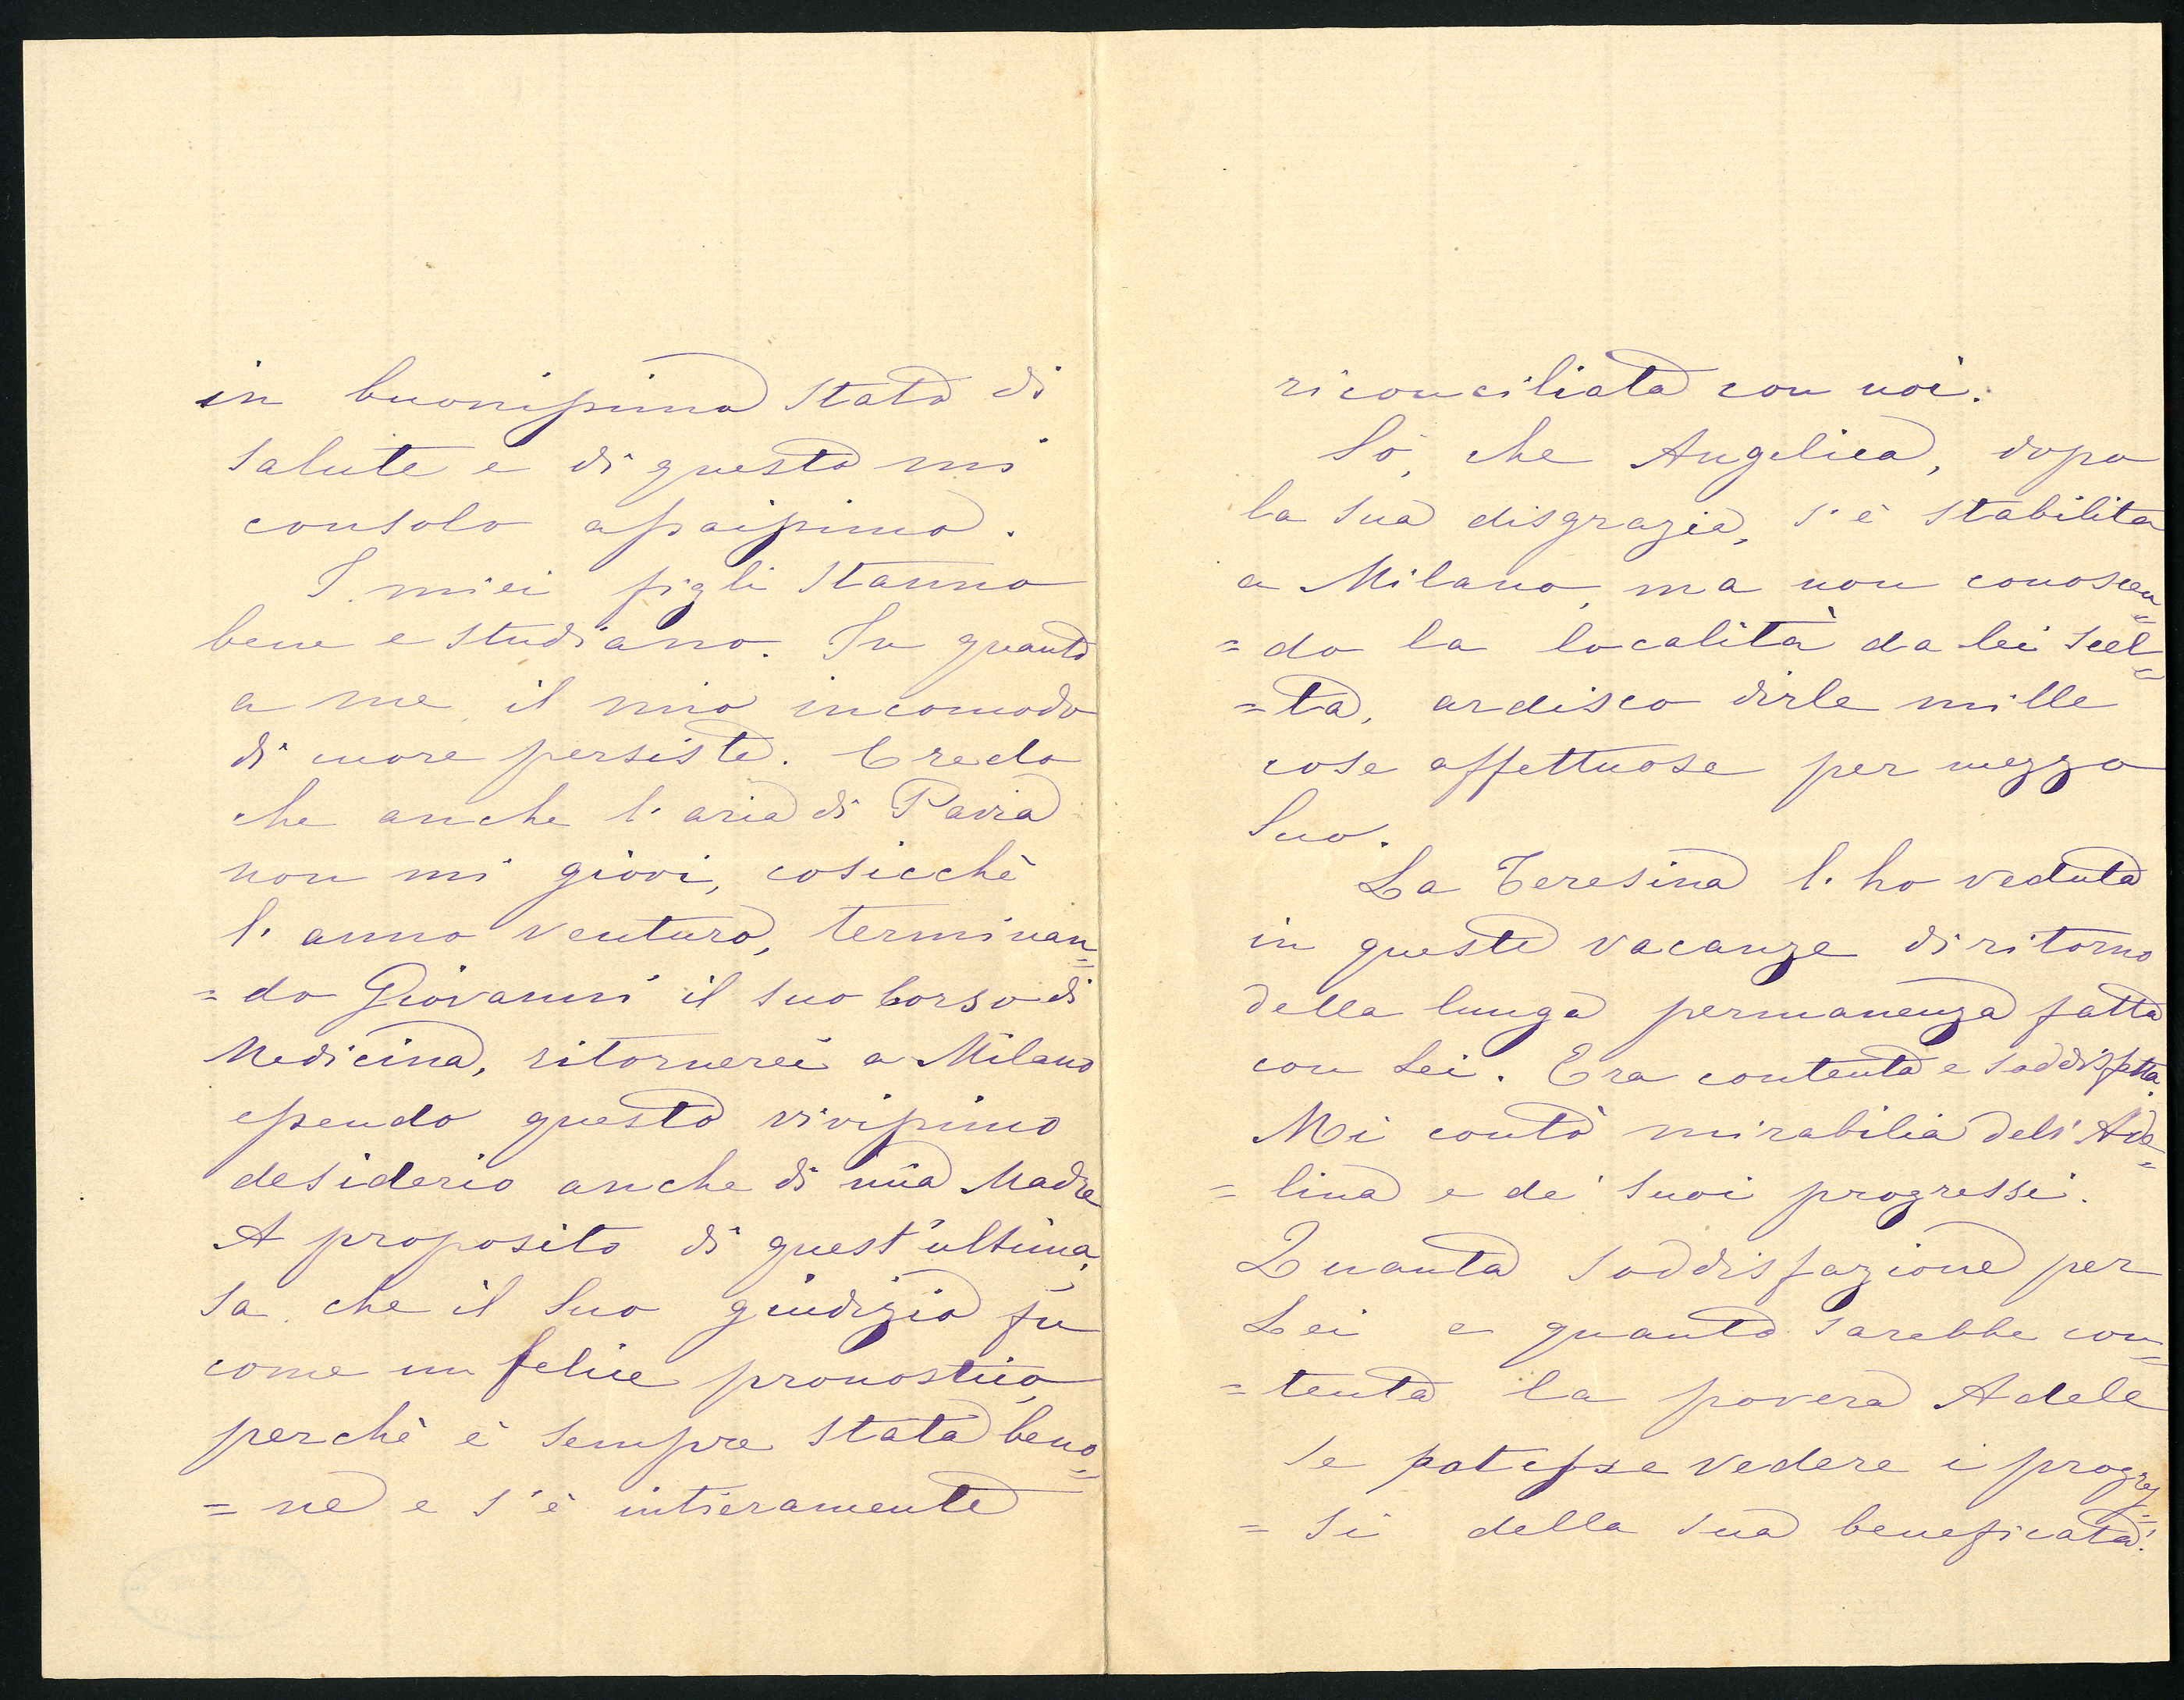 in buonissimo stato di
salute e di questo mi
consolo assaissimo.
I miei figli stanno
bene e studiano. In quanto
a me, il mio incomodo
di cuore persiste. Credo
che anche l'aria di Pavia
non mi giovi, cosicchè
l'anno venturo, terminan=
=do Giovanni il suo Corso di
Medicina, ritornerei a Milano
essendo questo vivissimo
desiderio anche di mia Madre
A proposito di quest'ultima,
sa che il Suo giudizio fu
come un felice pronostico,
perchè è sempre stata beno=
=ne e s'è intieramente
riconciliata con noi.
Sò, che Angelica, dopo
la sua disgrazia, s'è stabilita
a Milano, ma non conoscen=
=do la località da lei scel=
=ta, ardisco dirle mille
cose affettuose per mezzo
Suo.
La Teresina l'ho veduta
in queste vacanze di ritorno
della lunga permanenza fatta
con Lei. Era contenta e soddisfatta.
Mi contò mirabilia dell'Ade=
=lina e de' suoi progressi.
Quanta soddisfazione per
Lei e quanto sarebbe con=
=tenta la povera Adele
se potesse vedere i progres=
=si della sua beneficata!